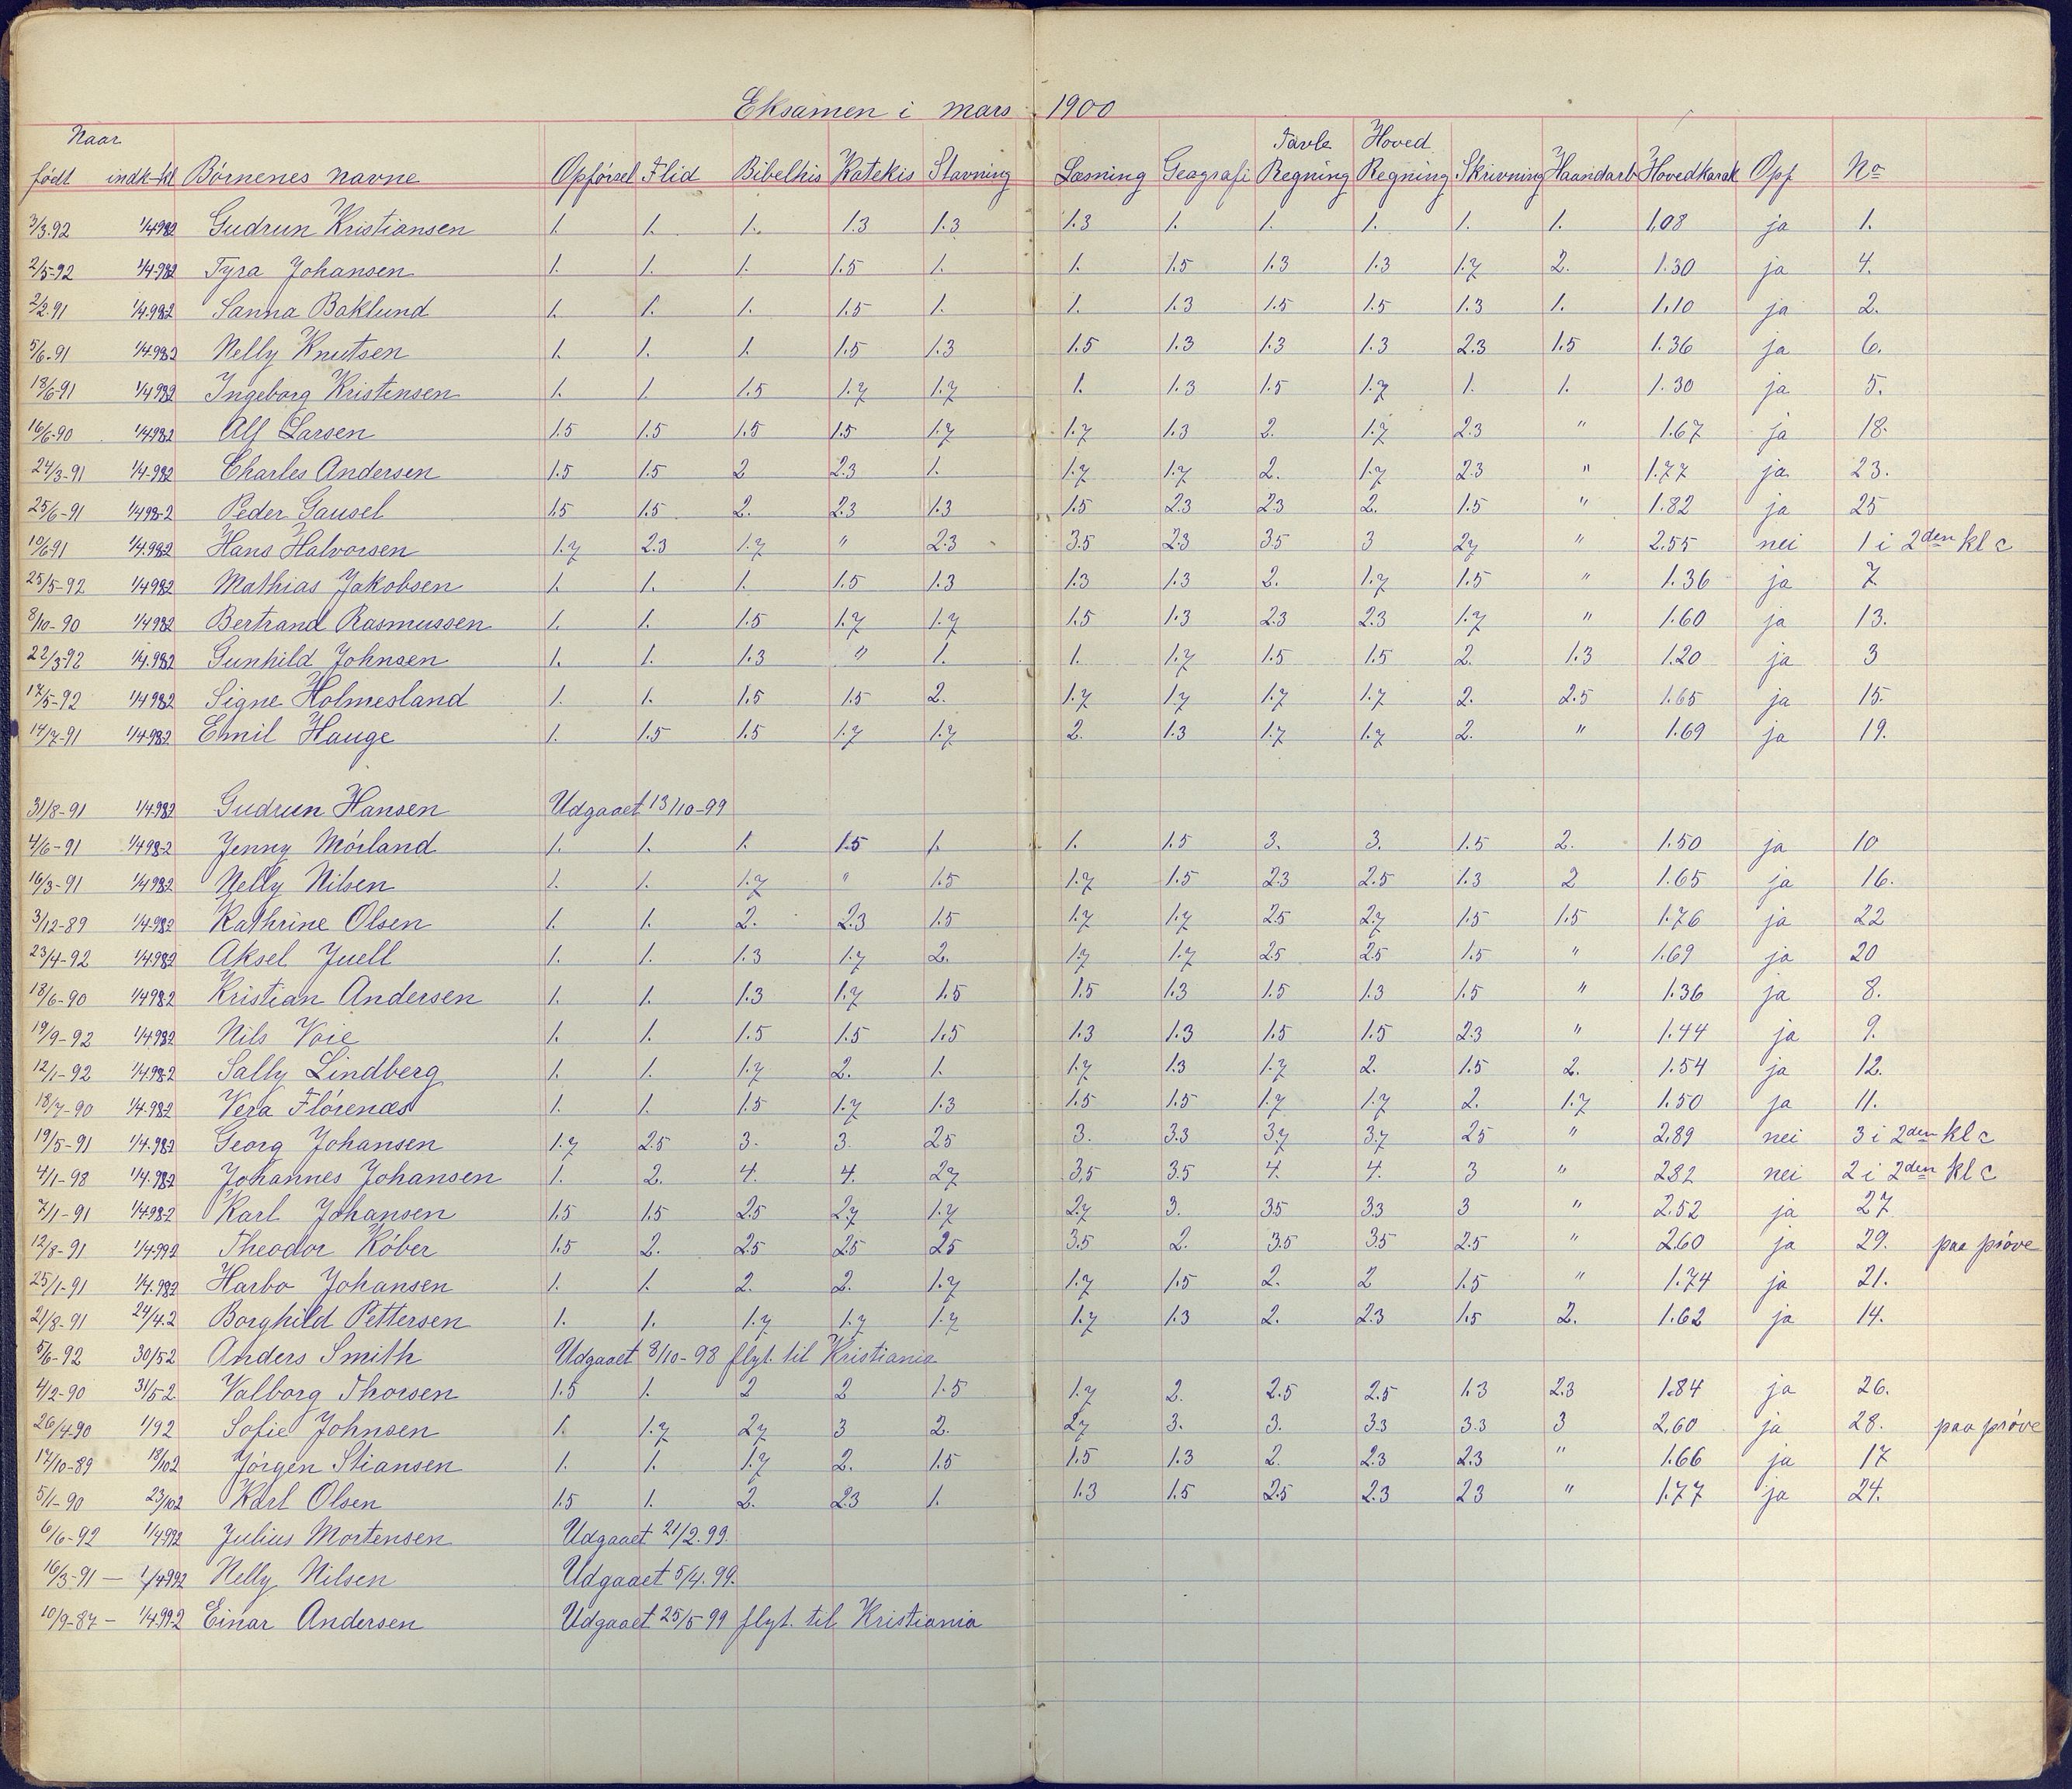 Eksamen i mars 1900
Naar Tavle Hoved
født indk-kl Børnenes navne Opførsel Flid Bibelhis Katekis Stavning Læsning Geografi Regning Regning Skrivning Haandarb Hovedkarak Opf No
3/3.92 1/4982 Gudrun Kristiansen 1. 1. 1. 1.3 1.3 1.3 1. 1. 1. 1. 1. 1.08 ja 1.
2/5-92 1/4-982 Tyra Johansen 1. 1. 1. 1.5 1. 1. 1.5 1.3 1.3 1.7 2. 1.30 ja 4.
2/2.91 1/4.982 Sanna Baklund 1. 1. 1. 1.5 1. 1. 1.3 1.5 1.5 1.3 1. 1.10 ja 2.
5/6.91 1/4.982 Nelly Knutsen 1. 1. 1. 1.5 1.3 1.5 1.3 1.3 1.3 2.3 1.5 1.36 ja 6.
18/6-91 1/4982 Ingeborg Kristensen 1. 1. 1.5 1.7 1.7 1. 1.3 1.5 1.7 1. 1. 1.30 ja 5.
16/6-90 1/4.982 Alf Larsen 1.5 1.5 1.5 1.5 1.7 1.7 1.3 2. 1.7 2.3 " 1.67 ja 18.
24/3-91 1/4-982 Charles Andersen 1.5 1.5 2 2.3 1. 1.7 1.7 2. 1.7 2.3 " 1.77 ja 23.
25/6-91 1/498-2 Peder Gausel 1.5 1.5 2. 2.3 1.3 1.5 2.3 2.3 2. 1.5 " 1.82 ja 25
10/6-91 1/4.982 Hans Halvorsen 1.7 2.3 1.7 " 2.3 3.5 2.3 3.5 3 2.7 " 2.55 nei 1 i 2den kl c
25/5-92 1/4982 Mathias Jakobsen 1. 1. 1. 1.5 1.3 1.3 1.3 2. 1.7 1.5 " 1.36 ja 7
8/10-90 1/4982 Bertrand Rasmussen 1. 1. 1.5 1.7 1.7 1.5 1.3 2.3 2.3 1.7 " 1.60 ja 13.
22/3-92 1/4.982 Gunhild Johnsen 1. 1. 1.3 " 1. 1. 1.7 1.5 1.5 2. 1.3 1.20 ja 3
17/5-92 1/4982 Signe Holmesland 1. 1. 1.5 1.5 2. 1.7 1.7 1.7 1.7 2. 2.5 1.65 ja 15.
14/7-91 1/4-982 Emil Hauge 1. 1.5 1.5 1.7 1.7 2. 1.3 1.7 1.7 2. " 1.69 ja 19.
31/8-91 1/4.982 Gudrun Hansen Udgaaet 13/10-99
4/6-91 1/498-2 Jenny Mørland 1. 1. 1. 1.5 1. 1. 1.5 3. 3. 1.5 2. 1.50 ja 10
16/3-91 1/4982 Nelly Nilsen 1. 1. 1.7 " 1.5 1.7 1.5 2.3 2.5 1.3 2 1.65 ja 16.
3/12-89 1/4-982 Kathrine Olsen 1. 1. 2. 2.3 1.5 1.7 1.7 2.5 2.7 1.5 1.5 1.76 ja 22
23/4-92 1/4982 Aksel Juell 1. 1. 1.3 1.7 2. 1.7 1.7 2.5 2.5 1.5 " 1.69 ja 20
18/6-90 1/4982 Kristian Andersen 1. 1. 1.3 1.7 1.5 1.5 1.3 1.5 1.3 1.5 " 1.36 ja 8.
19/9-92 1/4982 Nils Voie 1. 1. 1.5 1.5 1.5 1.3 1.3 1.5 1.5 2.3 " 1.44 ja 9.
12/1-92 1/4.98-2 Sally Lindberg 1. 1. 1.7 2. 1. 1.7 1.3 1.7 2. 1.5 2. 1.54 ja 12.
18/7-90 1/4.982 Vera Flørenæs 1. 1. 1.5 1.7 1.3 1.5 1.5 1.7 1.7 2. 1.7 1.50 ja 11.
19/5-91 1/4.982 Georg Johansen 1.7 2.5 3. 3. 2.5 3. 3.3 3.7 3.7 2.5 " 2.89 nei 3 i 2den kl c
4/1-98 1/4.982 Johannes Johansen 1. 2. 4. 4. 2.7 3.5 3.5 4. 4. 3 " 282 nei 2 i 2den kl c
7/1-91 1/498-2 Karl Johansen 1.5 1.5 2.5 2.7 1.7 2.7 3. 3.5 3.3 3 " 2.52 ja 27
12/8-91 1/4.992 Theodor Køber 1.5 2. 2.5 2.5 2.5 3.5 2. 3.5 3.5 2.5 " 2.60 ja 29. paa prøve
25/1-91 1/4.982 Harbo Johansen 1. 1. 2. 2. 1.7 1.7 1.5 2. 2 1.5 " 1.74 ja 21.
21/8-91 24/4.2 Borghild Pettersen 1. 1. 1.7 1.7 1.7 1.7 1.3 2. 2.3 1.5 2. 1.62 ja 14.
5/6-92 30/52 Anders Smith Udgaaet 8/10-98 flyt. til Kristiania
4/2-90 31/52 Valborg Thorsen 1.5 1. 2 2 1.5 1.7 2. 2.5 2.5 1.3 2.3 1.84 ja 26.
26/4.90 1/92 Sofie Johnsen 1. 1.7 2.7 3 2. 2.7 3. 3. 3.3 3.3 3 2.60 ja 28. paa prøve
17/10-89 18/102 Jørgen Stiansen 1. 1. 1.7 2. 1.5 1.5 1.3 2. 2.3 2.3 " 1.66 ja 17
5/1-90 23/102 Karl Olsen 1.5 1. 2. 2.3 1. 1.3 1.5 2.5 2.3 2.3 " 1.77 ja 24.
6/6-92 1/4992 Julius Mortensen Udgaaet 21/2.99.
16/3-91 — 1/4992 Nelly Nilsen Udgaaet 5/4.99.
10/9-87 — 1/499-2 Einar Andersen Udgaaet 25/5 99 flyt. til Kristiania